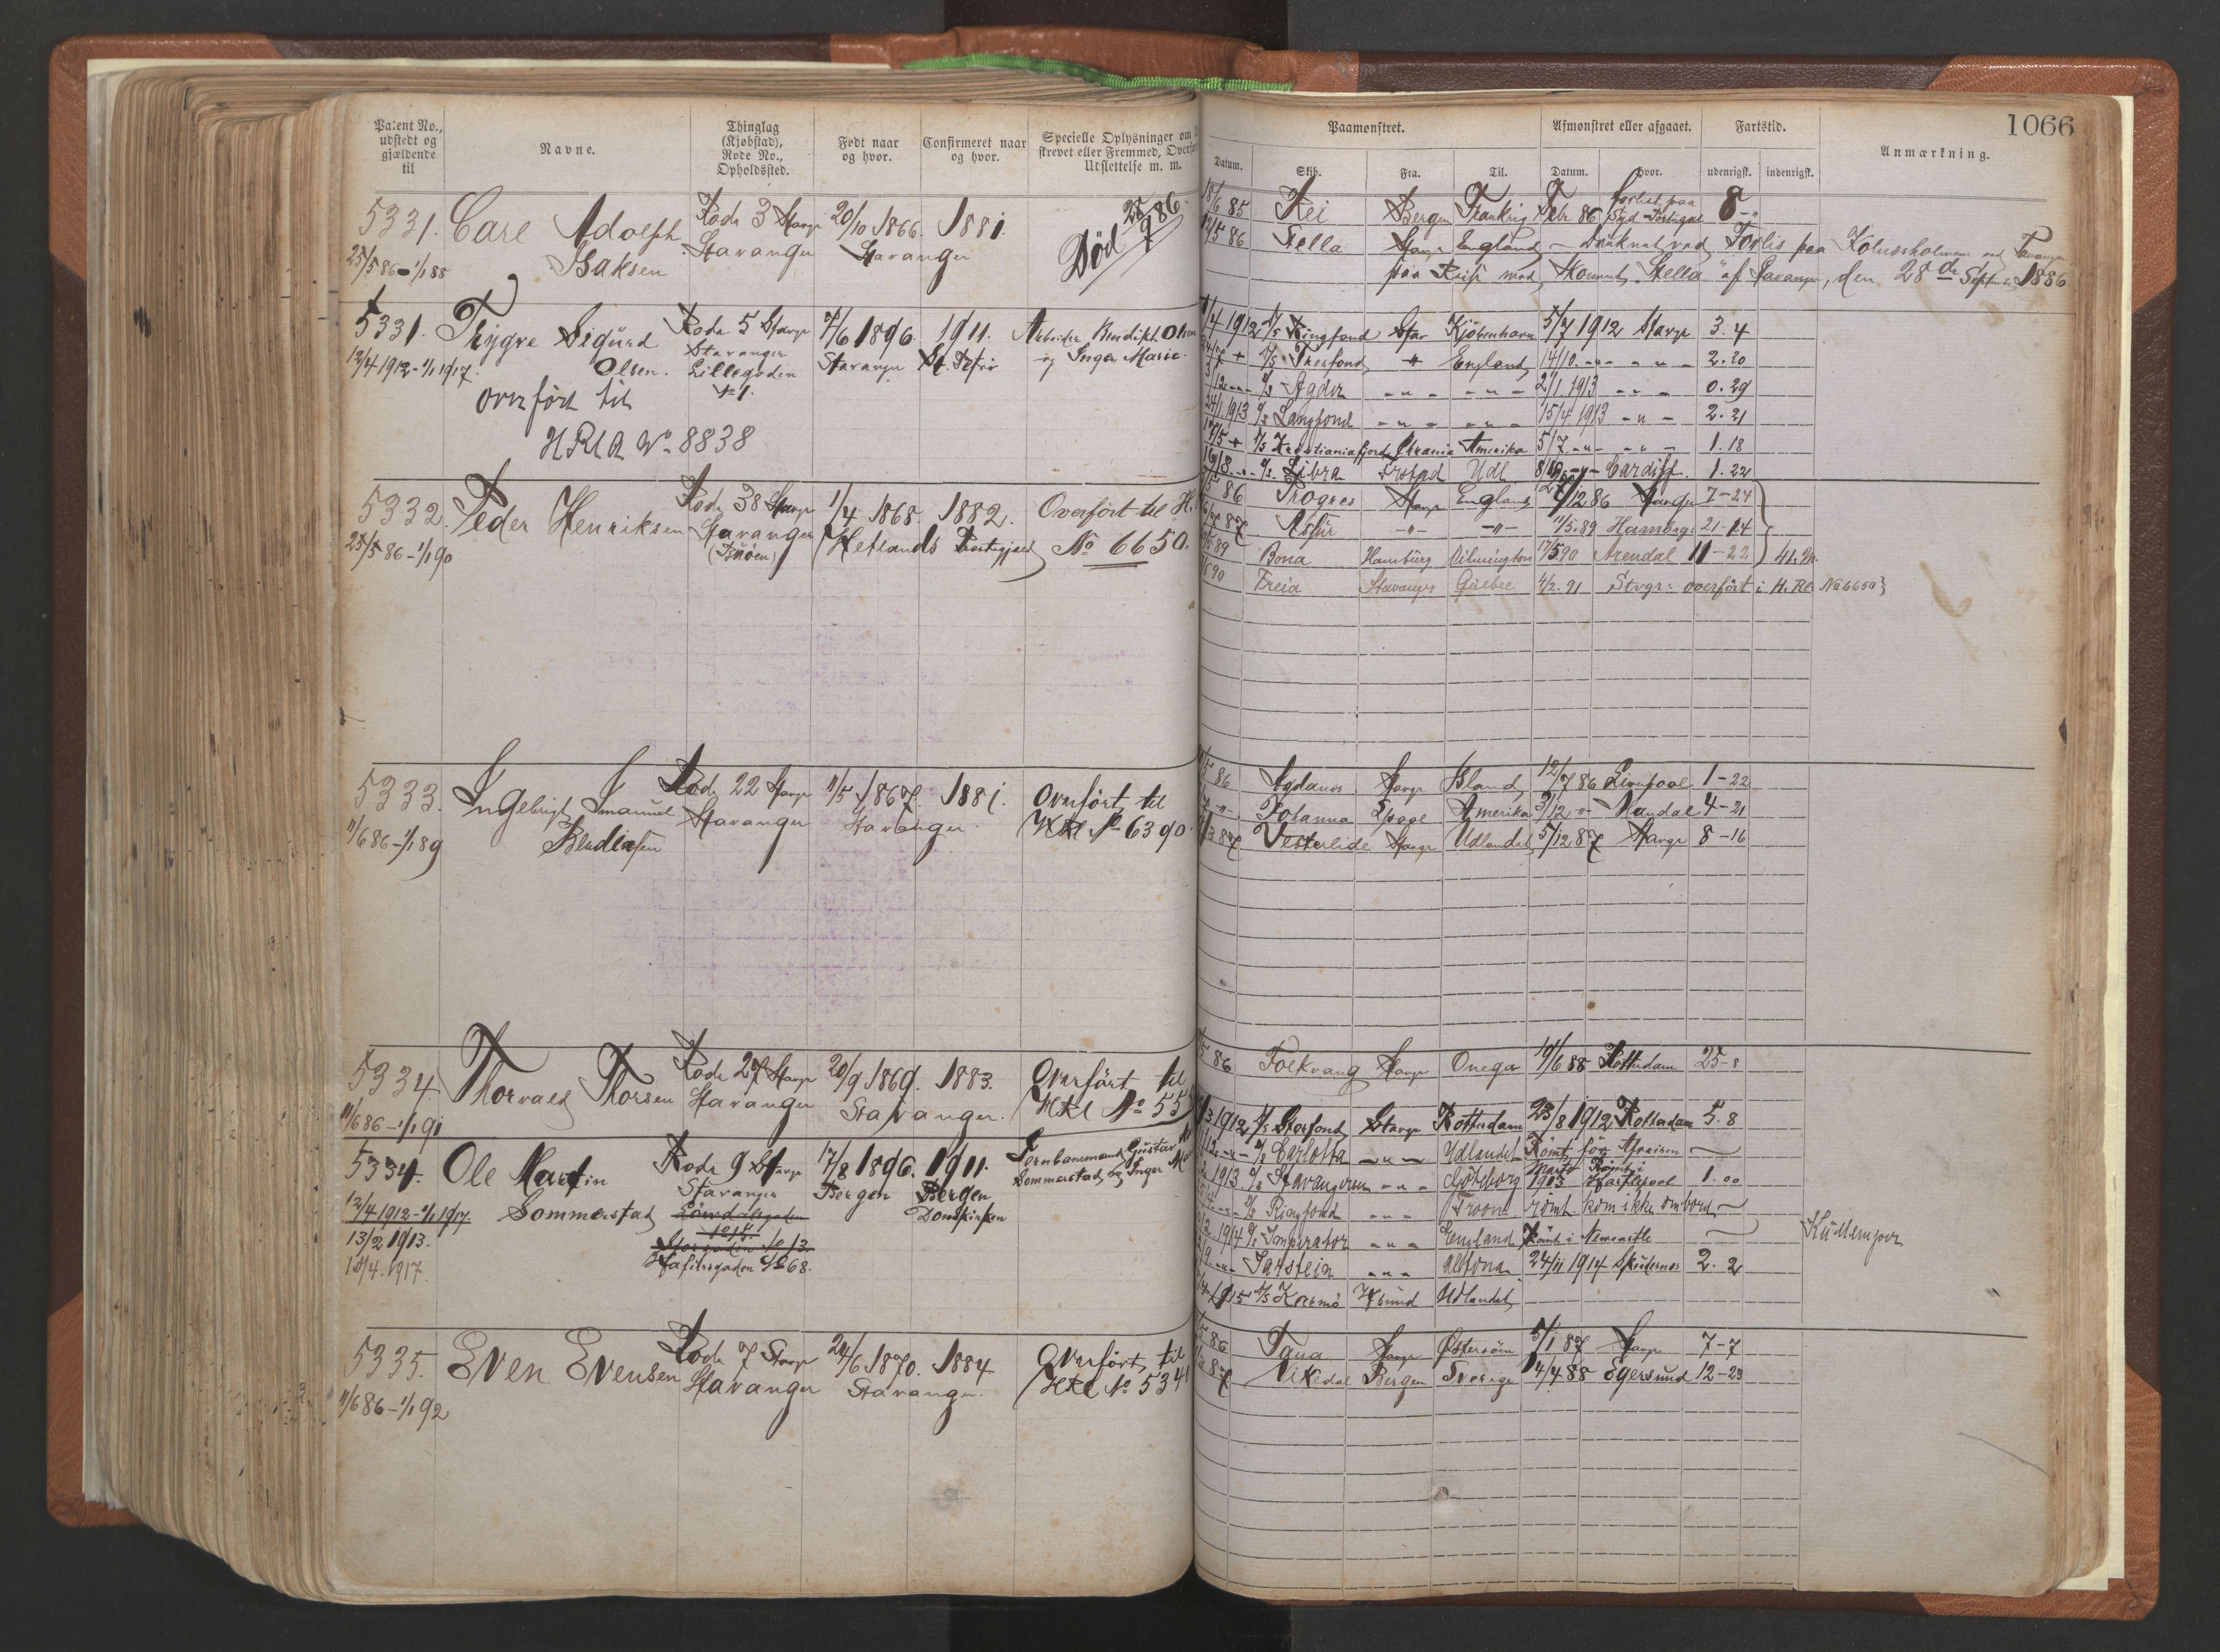 1066
Patent No., udstedt og gjældende til
Navne.
Thinglag (Kjøbstad), Rode No., Opholdssted.
Født naar og hvor.
Confirmeret naar og hvor.
Specielle Oplysninger om
skrevet eller Fremmed, Overfør
Udslettelse m. m.
Paamønstret.
Afmønstret eller afgaaet.
Fartstid.
Anmærkning.
Datum. Skib. Fra. Til. Datum. Hvor. udenrigsk. indenrigsk.
5331. Carl Adolph Rode 3 Stavgr 20/10 1866. 1881.
25/5 86 - 1/1 88 Isaksen Stavanger Stavanger
Død 28/9 86.
18/6 85 Rei Bergen Frankrig Febr 86 forlist paa Syd-Portugal 8 - "
12/5 86 Stella Stavgr England - druknet ved Forlis paa Kolussholmene ved
paa Reise med Skonnert Stella af Stavanger, den 28de Septbr 1886
5331. Trygve Sigurd Rode 5 Stavgr 7/6 1896. 1911. Arbeider Benedikt Olsen
12/4 1912 - 1/1 1917. Olsen. Stavanger Stavanger St. Petri og Inger Marie.
Lillegaden
№ 1.
overført til
HRlA № 8838
/4 1912 D/s Ringfond Stav Kjøbenhavn 5/7 1912 Stavgr 3. 4
D/s Tresfond England 14/10 - " - - " - 2. 20
D/s Agder - " - - " - 2/1 1913 - " - 0. 29
24/1 1913 D/s Langfond - " - - " - 15/4 1913 - " - 2. 21
D/s Kristianiafjord Chrania Amerika 5/7 - " - - " - 1. 18
16/8 - " - D/s Libra Frstad Udl 8/10 - " - Cardiff 1. 22
5332. Peder Henriksen Rode 38 Stavgr 1/4 1868. 1882. Overført til H.
25/5 86 - 1/1 90 Stavanger Hetlands Prestegjæld № 6650.
86 Progres Stavgr England /12 86 Stavgr 7 - 24
87 Astür - " - - " - 11/5. 89 Hamburg 21 - 14
89 Bona Hamburg Wilmington 17/5 90 Arendal 11 - 22
90 Freia Stavanger Quebec 4/2. 91 Stvgr: overført i H. Rl. № 6650
5333. Ingebrigt Emanuel Rode 22 Stavgr 11/5 1867. 1881. Overført til
11/6 86 - 1/1 89 Bendiksen Stavanger Stavanger. HRl № 6390.
/5 86 Ogdanes Stavgr Island 12/7 86 Liverpool 1 - 22
Johanna Amerika /12 - " - Mandal 4 - 21
/3 87 Vesterlide Stavgr Udlandet 5/12 87 Stavgr 8 - 16
5334. Thorvald Thorsen Rode 27 Stavgr 20/9 1869. 1883. Overført til
11/6 86 - 1/1 91 Stavanger Stavanger. HRl № 55
86 Folkvang Stavgr Onega 19/6 88 Rotterdam 25 - 8
5334. Ole Martin Rode 9 Stavgr 17/8 1896. 1911. Jernbanemand Gustav
12/4 1912 - 1/1 1917. Sommerstad Stavanger Bergen Bergen Sommerstad og Inger
13/2 1913. Domkirken
12/4. 1917. Storgaden № 13.
Hafrsgaden № 68.
/3 1912 D/s Storfond Stavgr Rotterdam 23/8 1912 Rotterdam 5. 8
D/s Carlotta - " - Udlandet Rømt før Afreisen
1913 D/s Stavangeren - " - Gøteborg Marts 1913 Rømt i Hartlepool 1. 00
D/s Ringfond - " - Troon rømt. kom ikke ombord
1914 D/s Imperator - " - England Rømt i Newcastle
/9 - " - Jarstein - " - Altona 24/11 1914 Skudenes 2. 2
1915 D/s Karmø Hsund Udlandet
5335. Even Evensen Rode 7 Stavgr 24/6 1870. 1884. Overført til
11/6 86 - 1/1 92 Stavanger Stavanger. HRl № 534
86 Tana Stavgr Østersøen 5/1 87 Stavgr 7 - 7
87 Vikedal Bergen Sverige 14/4 88 Egersund 12 - 23